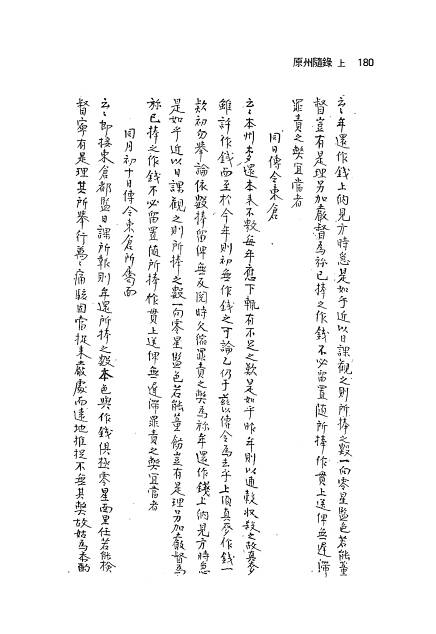 原州隨錄 上 180
云云年還作錢上納見方時急是如乎近以日課觀之則所捧之數一向零星監色若能董
督豈有是理另加嚴督爲旀已捧之作錢不必留置隨所捧作貫上送俾無遲滯
罪責之弊宜當者
同日傳令東倉
云云本州各還本來不數每年應下輒有不足之歎是如乎昨年則以通穀收殺之故眞麥
雖許作錢而至於今年則初無作錢之可論乙仍于玆以傳令爲去乎上項眞麥作錢一
款初勿擧論依數捧留俾無反閱時欠縮罪責之弊爲旀年還作錢上納見方時急
是如乎近以日課觀之則所捧之數一向零星監色若能董飭豈有是理另加嚴督爲
旀已捧之作錢不必留置隨所捧作貫上送俾無遲滯罪責之弊宜當者
同月初十日傳令東倉所屬面
云云卽接東倉都監日課所報則年還所捧之數本色與作錢俱極零星面里任若能檢
督寧有是理其所擧行萬萬痛駭固當捉來嚴處而遠地推捉不無其弊故姑爲參酌